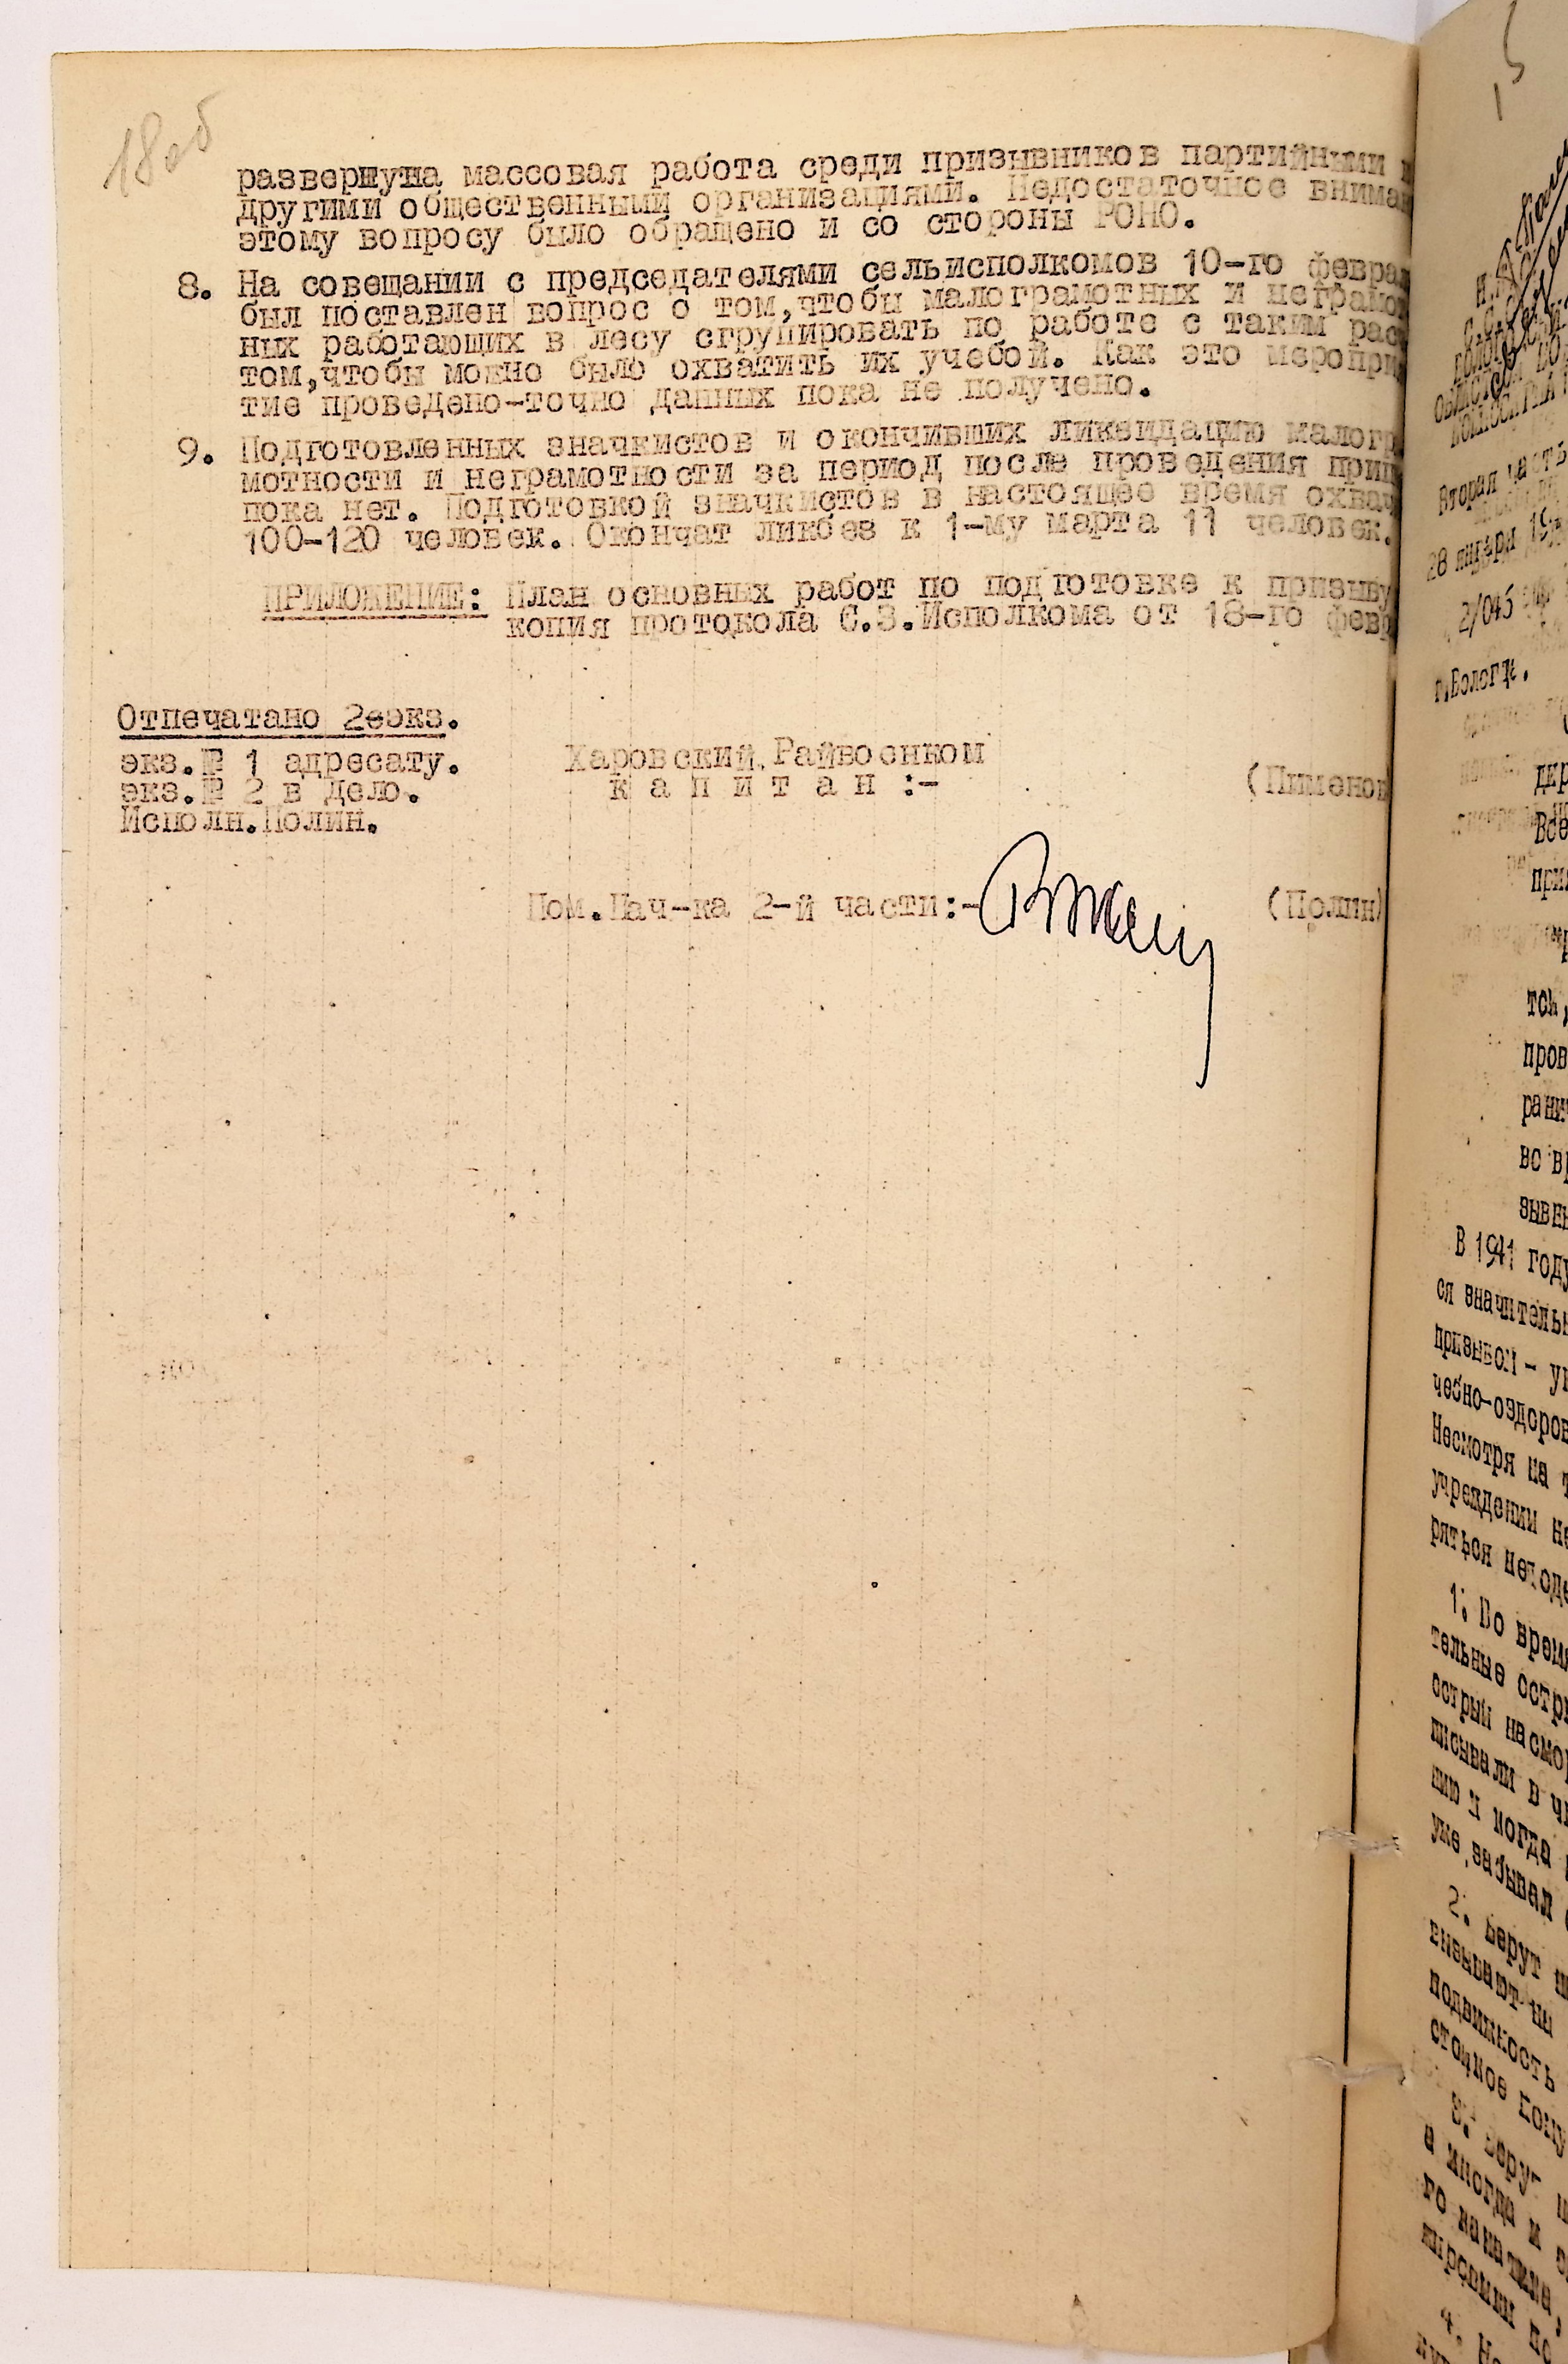 18об
развернута массовая работа среди призывников партийными и
другими общественный организациями. Недостаточное внима
этому вопросу было обращено и со стороны РОНО.
8. На совещании с председателями сельисполкомов 10-го февра
был поставлен вопрос о том,чтобы малограмотных и неграмо
ных работающих в лесу сгрупировать по работе с таким рас
том,чтобы можно было охватить их учебой. Как это меропри
тие проведено-точно данных пока не получено.
9. Подготовленных значкистов и окончивших ликвидацию малогр
мотности и неграмотности за период после проведения при
пока нет. Подготовкой значкистов в настоящее время охва
100-120 человек. Окончат ликбез к 1-му марта 11 человек.
ПРИЛОЖЕНИЕ: План основных работ по подготовке к призыву
копия протокола С.З.Исполкома от 18-го фев
Отпечатано 2еэкз.
экз.№ 1 адресату.
экз.№ 2 в дело.
Исполн.Полин.
Харовский Райвоенком
к а п и т а н :-
(Пименов
Пом.Нач-ка 2-й части:-
(Полин)
Вторая часть
28 января 19
2/045
г.Вологда.
дир
Все
при
тся,
пров
рани
во вр
зывн
В 1941 году
ся значитель
призвон - у
чебно-оздоров
Несмотря на т
учреждении не
рятся недоде
1. Во врем
тельные остр
острый насмор
писывали в ч
нию и когда
уже забывал
2. Берут
вызывают
подвижность
стойкое
3. Берут
а иногда и
4. Не